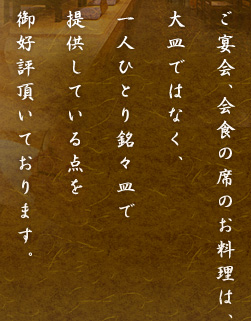 ご宴会、会食の席のお料理は、
大皿ではなく、
一人ひとり銘々皿で
提供している点を
御好評頂いております。